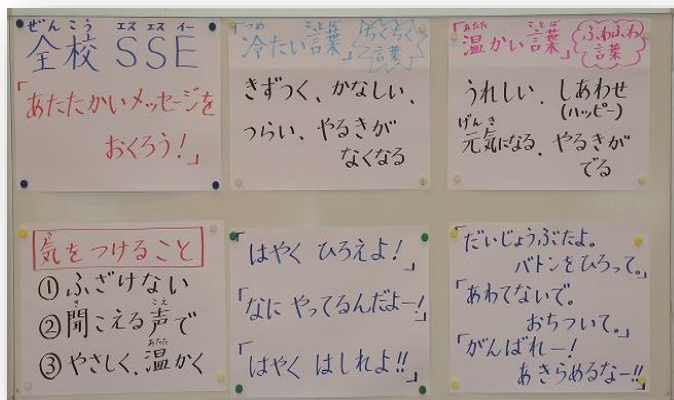 全校 SSE
「あたたかいメッセージを
おくろう！」
「冷たい言葉」
ちくちく
言葉
きずつく、かなしい、
つらい、やるきが
なくなる
「温かい言葉」
ふわふわ
言葉
うれしい、しあわせ
(ハッピー)
元気になる、やるきが
でる
気をつけること
①ふざけない
②聞こえる声で
③やさしく、温かく
「はやく ひろえよ！」
「なに やってるんだよー！」
「はやく はしれよ!!」
「だいじょうぶだよ。
バトンをひろって。」
「あわてないで。
おちついて。」
「がんばれー！
あきらめるなー!!」